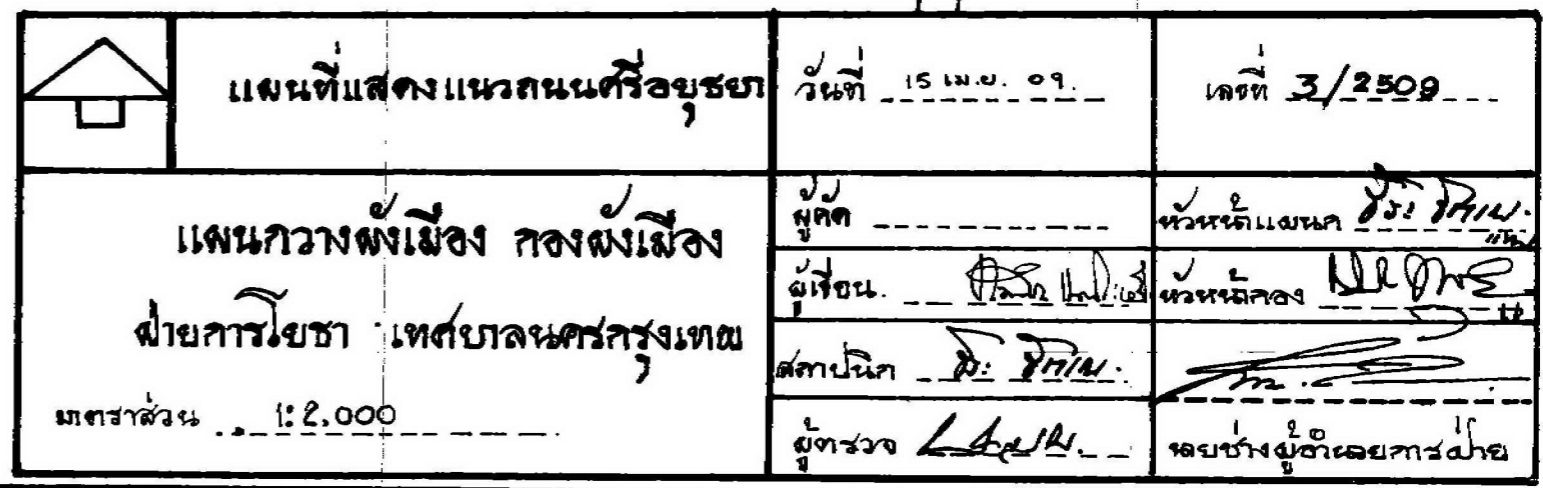 แผนที่แสดงแนวถนนศรีอยุธยา
วันที่ 15 เม.ย. 09.
เลขที่ 3/2509
แผนกวางผังเมือง กองผังเมือง
ฝ่ายการโยธา เทศบาลนครกรุงเทพ
มาตราส่วน 1:2,000
ผู้คัด
หัวหน้าแผนก
ผู้เขียน
หัวหน้ากอง
สถาปนิก
ผู้ตรวจ
นายช่างผู้อำนวยการฝ่าย